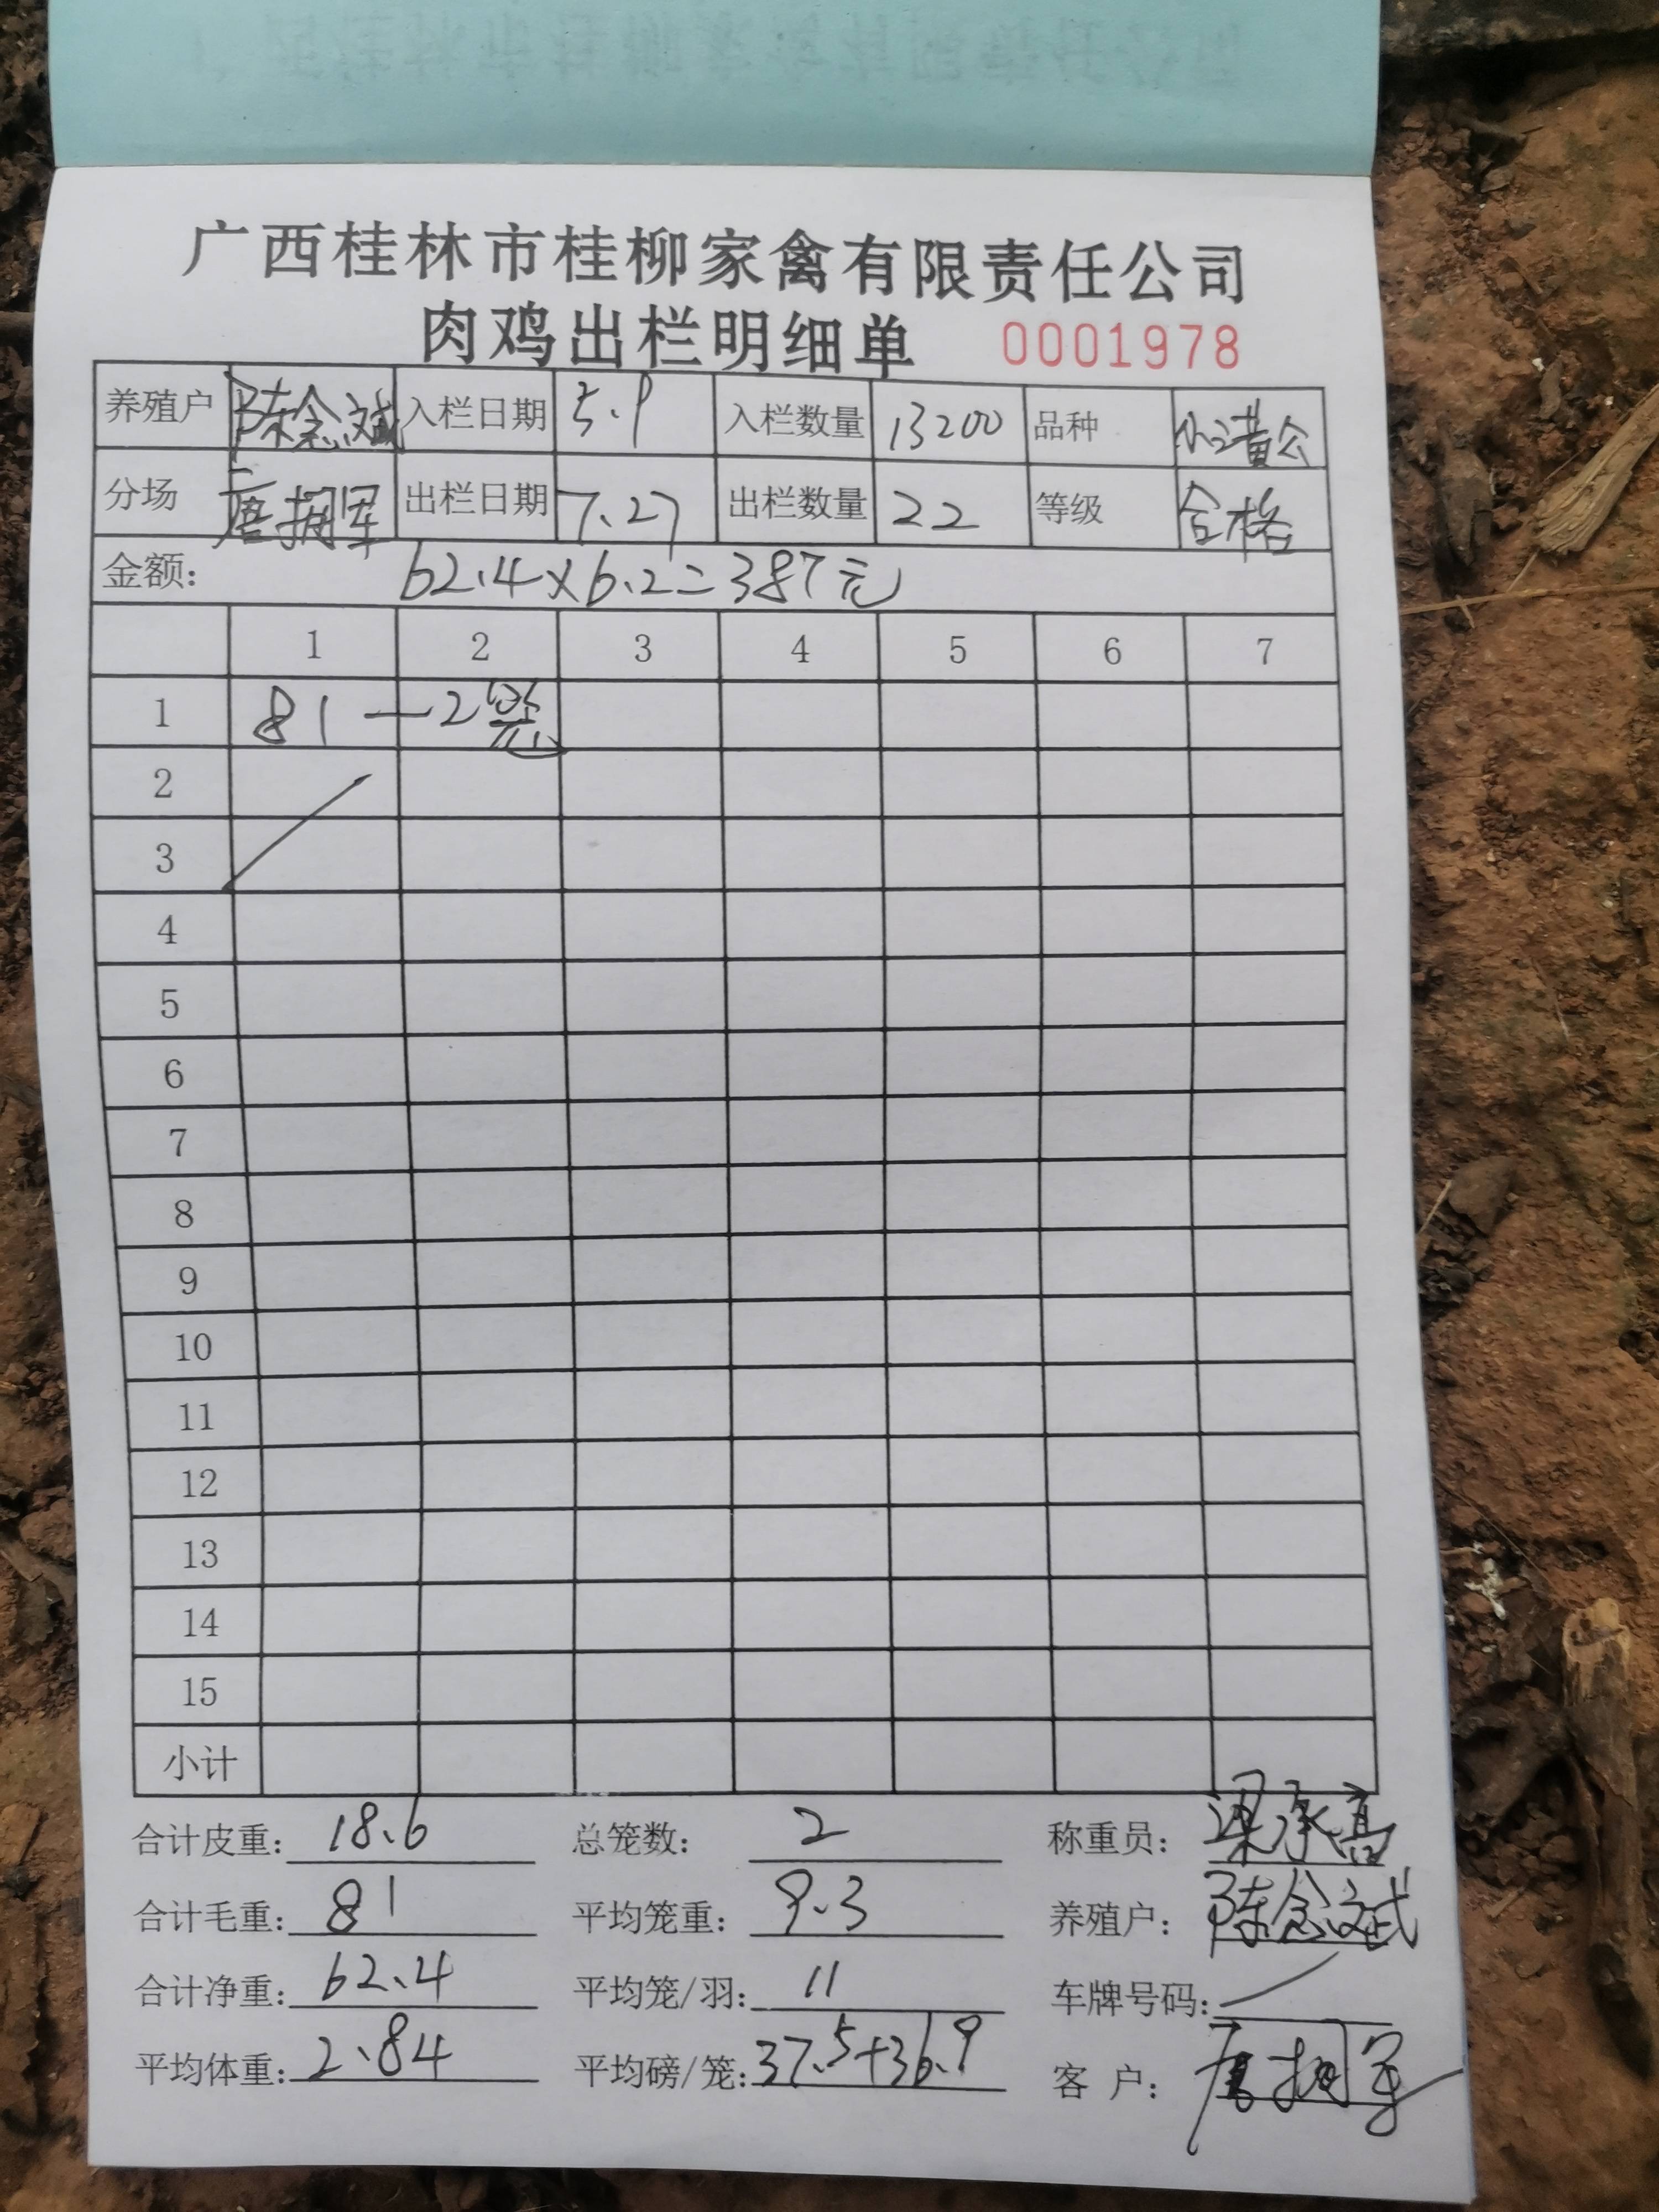 广西桂林市桂柳家禽有限责任公司
肉鸡出栏明细单 0001978
养殖户 陈念斌 入栏日期 5.9 入栏数量 13200 品种 小黄公
分场 唐拥军 出栏日期 7.27 出栏数量 22 等级 合格
金额: 62.4×6.2=387元
1 2 3 4 5 6 7
1 81—2笼
2
3
4
5
6
7
8
9
10
11
12
13
14
15
小计
合计皮重: 18.6 总笼数: 2 称重员: 梁承高
合计毛重: 81 平均笼重: 9.3 养殖户: 陈念斌
合计净重: 62.4 平均笼/羽: 11 车牌号码:
平均体重: 2.84 平均磅/笼: 37.5+36.9 客户: 唐拥军